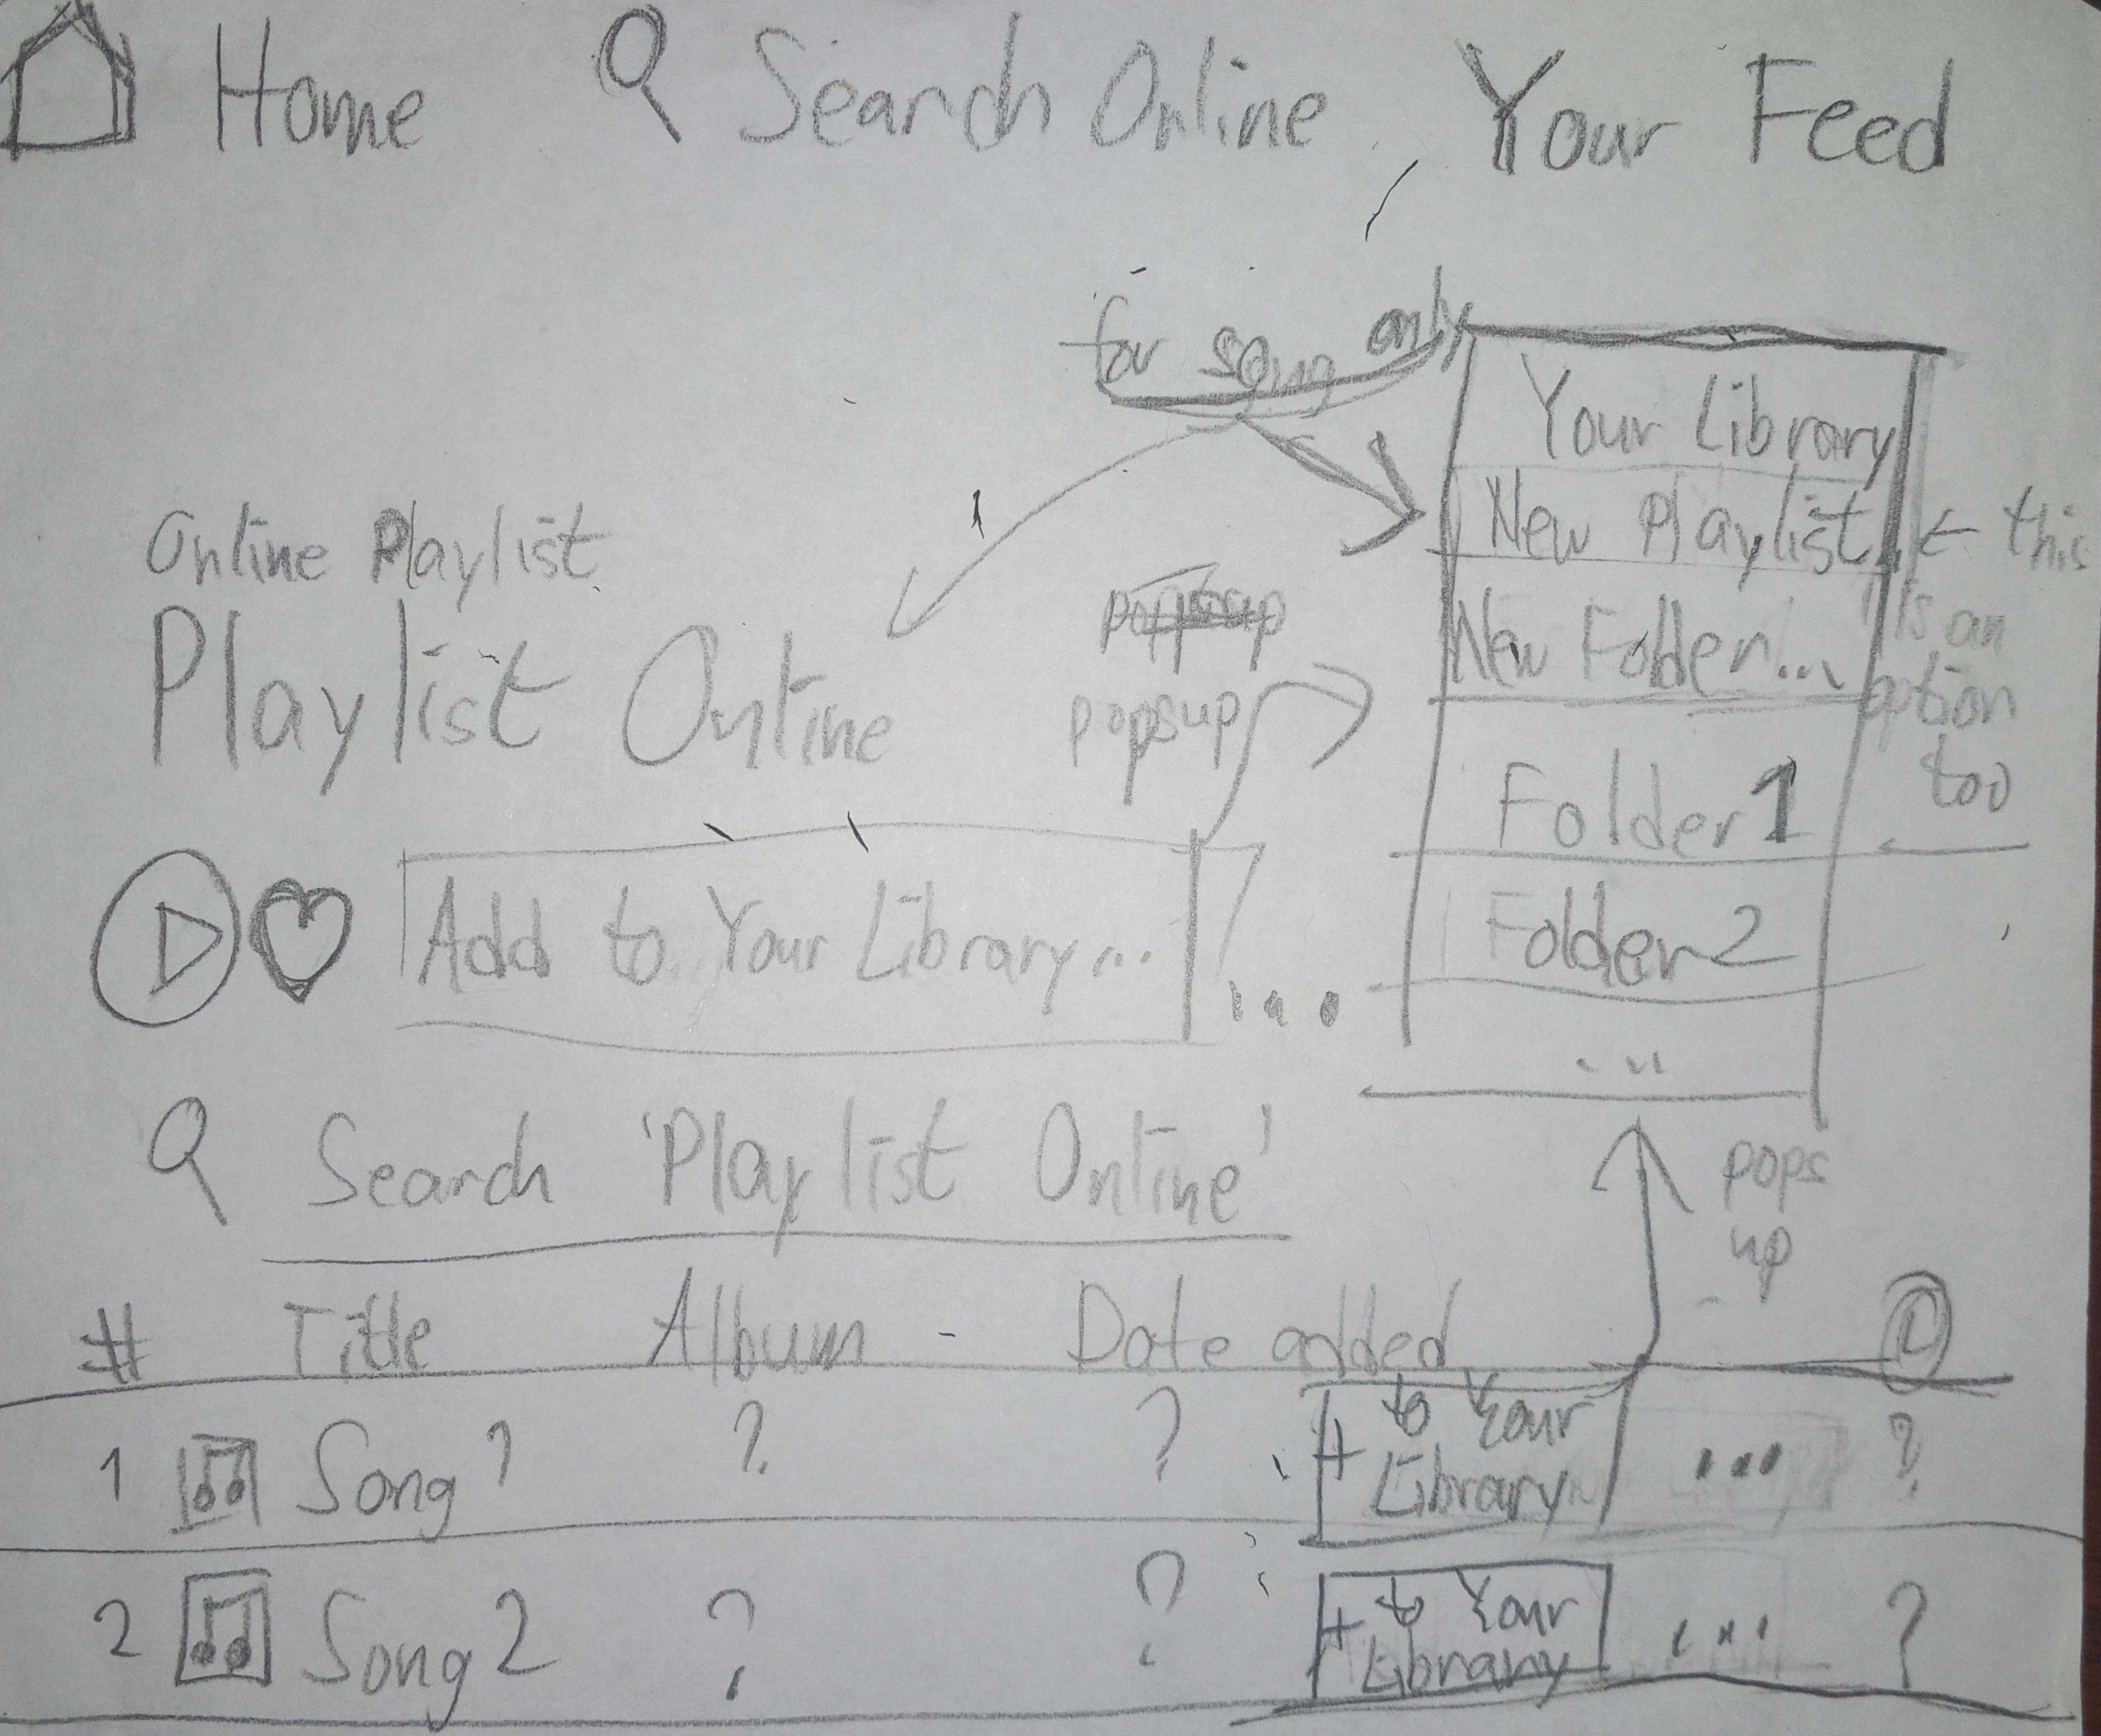 Home Search Online Your Feed
for song only
Your Library
New Playlist
← this
is an
option
too
New Folder...
Folder 1
Folder 2
...
Online Playlist
Playlist Online
popsup
Add to Your Library...
...
Search 'Playlist Online'
pops
up
# Title Album - Date added
1 Song 1 ? ? + to Your
Library ... ?
2 Song 2 ? ? + to Your
Library ... ?